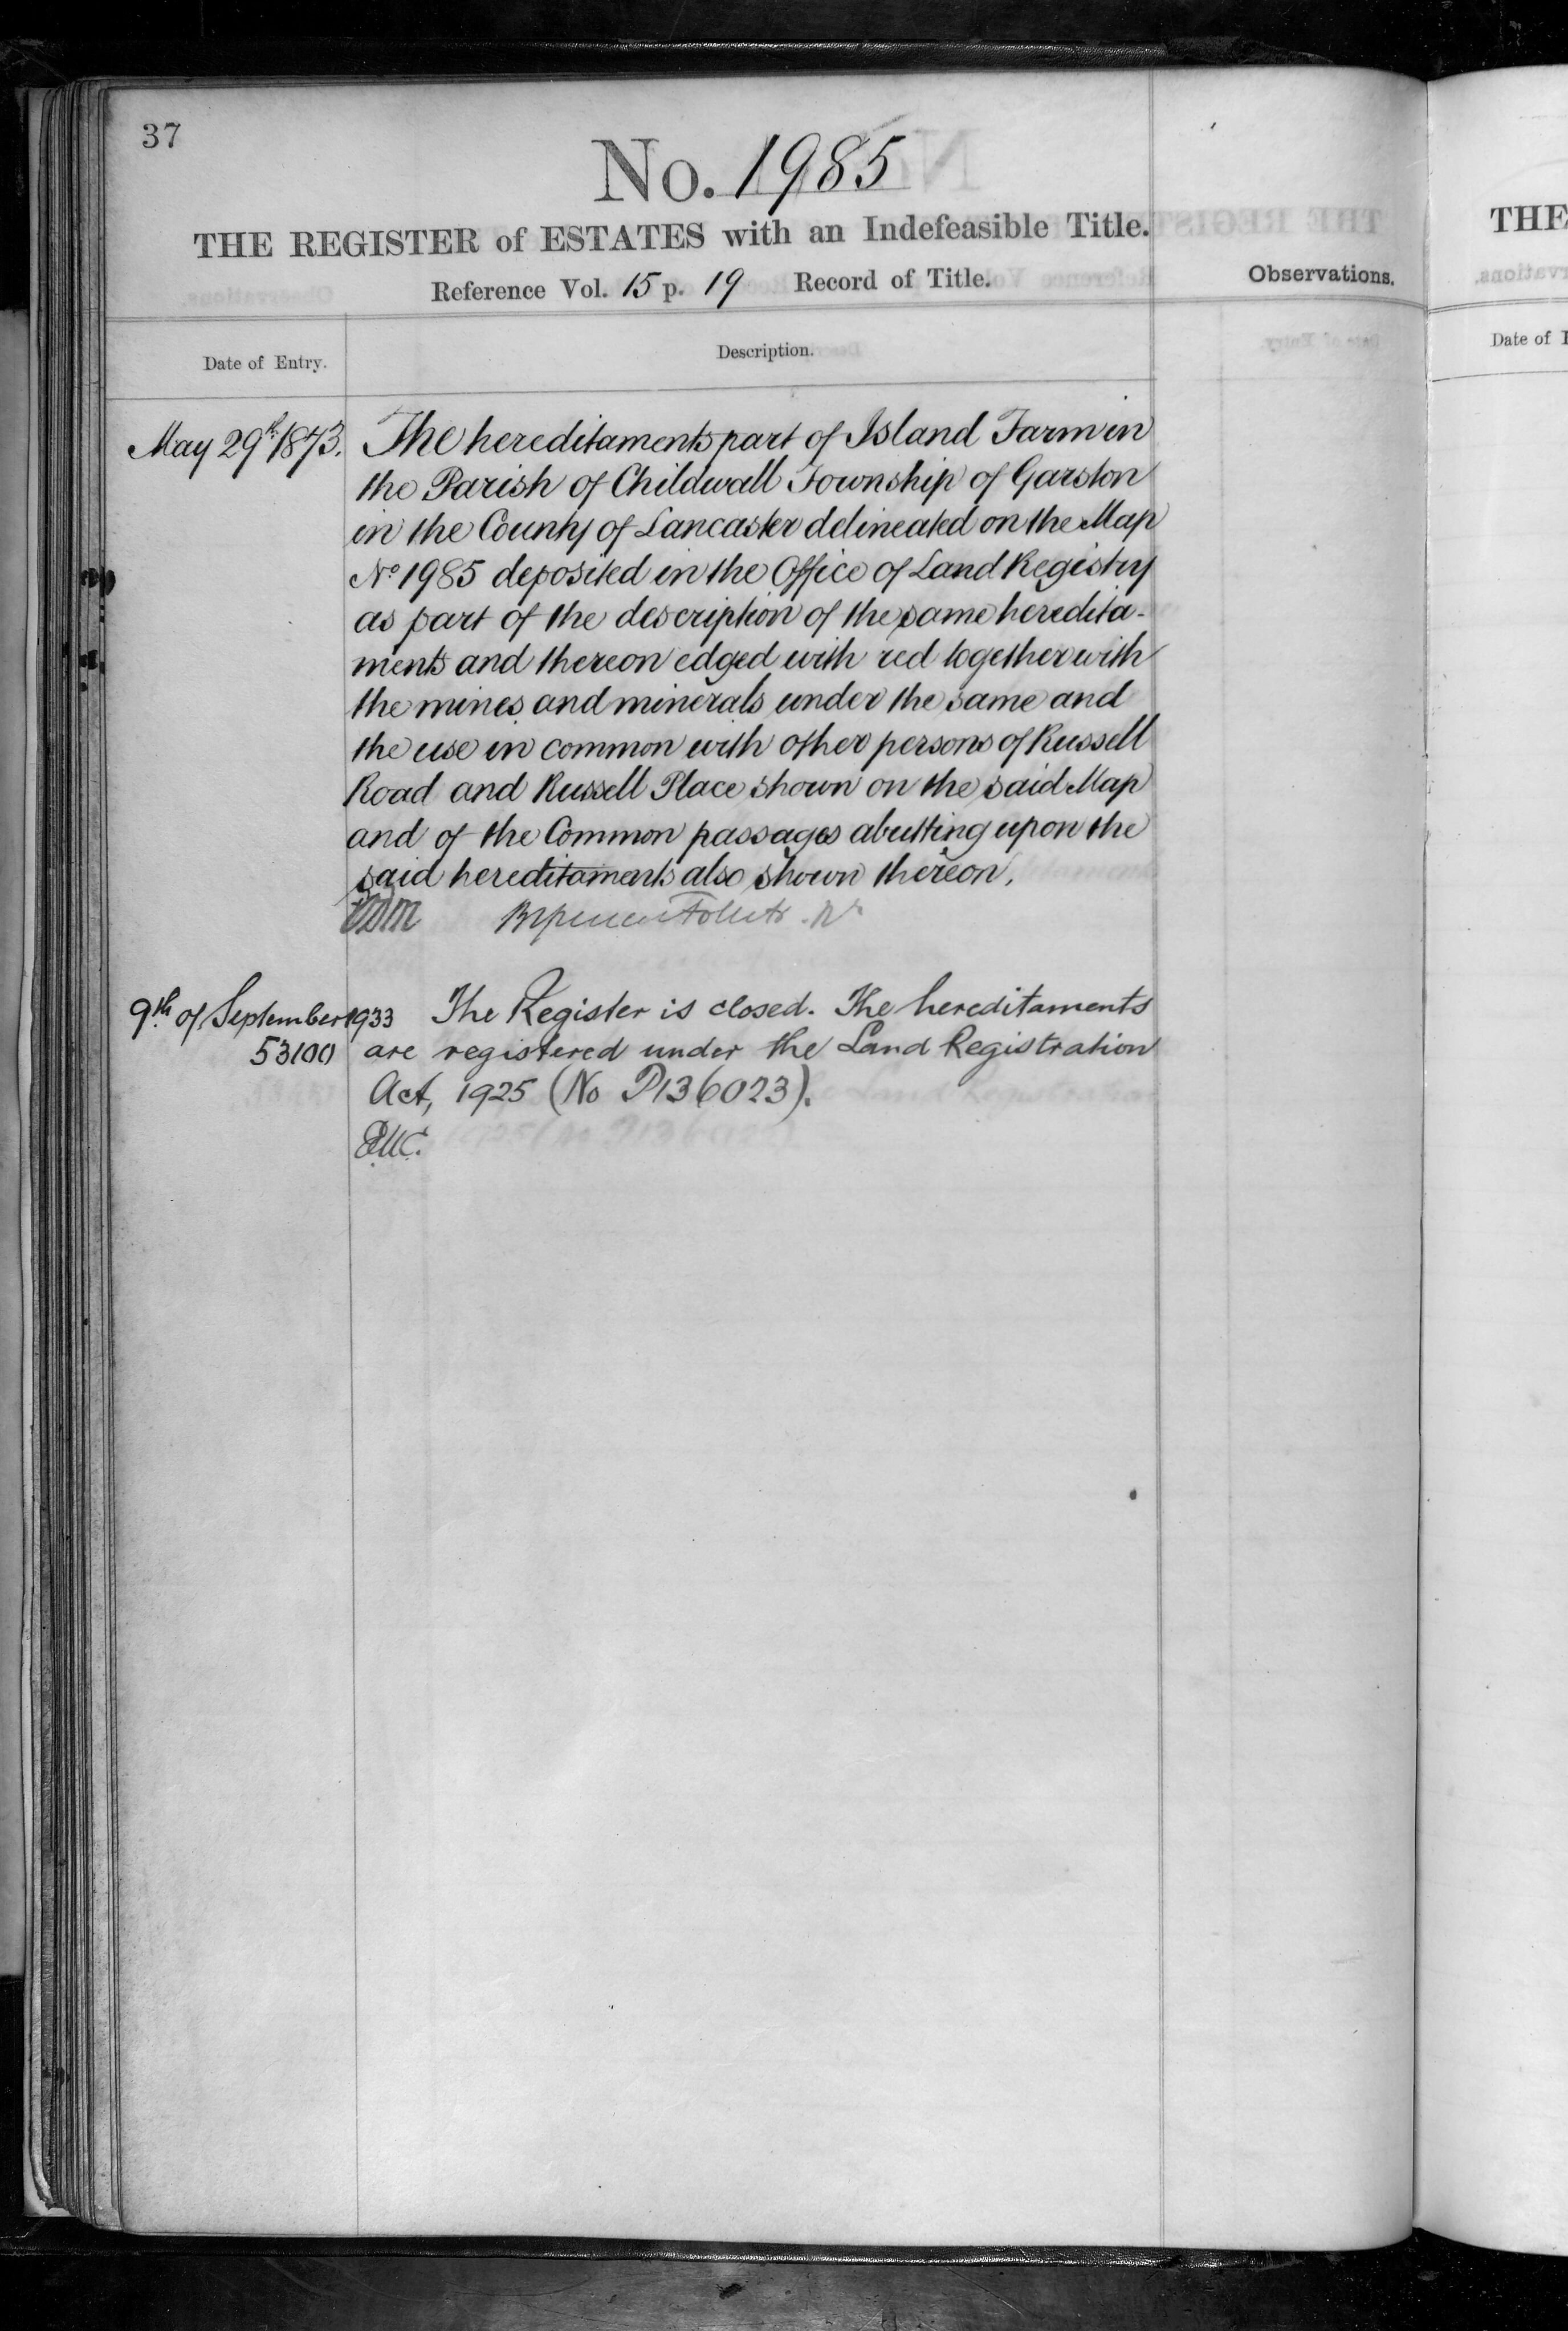 37
No. 1985
THE REGISTER of ESTATES with an Indefeasible Title.
Reference Vol. 15 p. 19 Record of Title.
Observations.
Date of Entry.
Description.
May 29th 1873.
The hereditaments part of Island Farm in
the Parish of Childwall Township of Garston
in the County of Lancaster delineated on the Map
No 1985 deposited in the Office of Land Registry
as part of the description of the same heredita-
ments and thereon edged with red together with
the mines and minerals under the same and
the use in common with other persons of Russell
Road and Russell Place shown on the said Map
and of the Common passages abutting upon the
said hereditaments also shown thereon.
9th of September 1933
53100
The Register is closed. The hereditaments
are registered under the Land Registration
Act, 1925 (No P136023).
THE
Date of